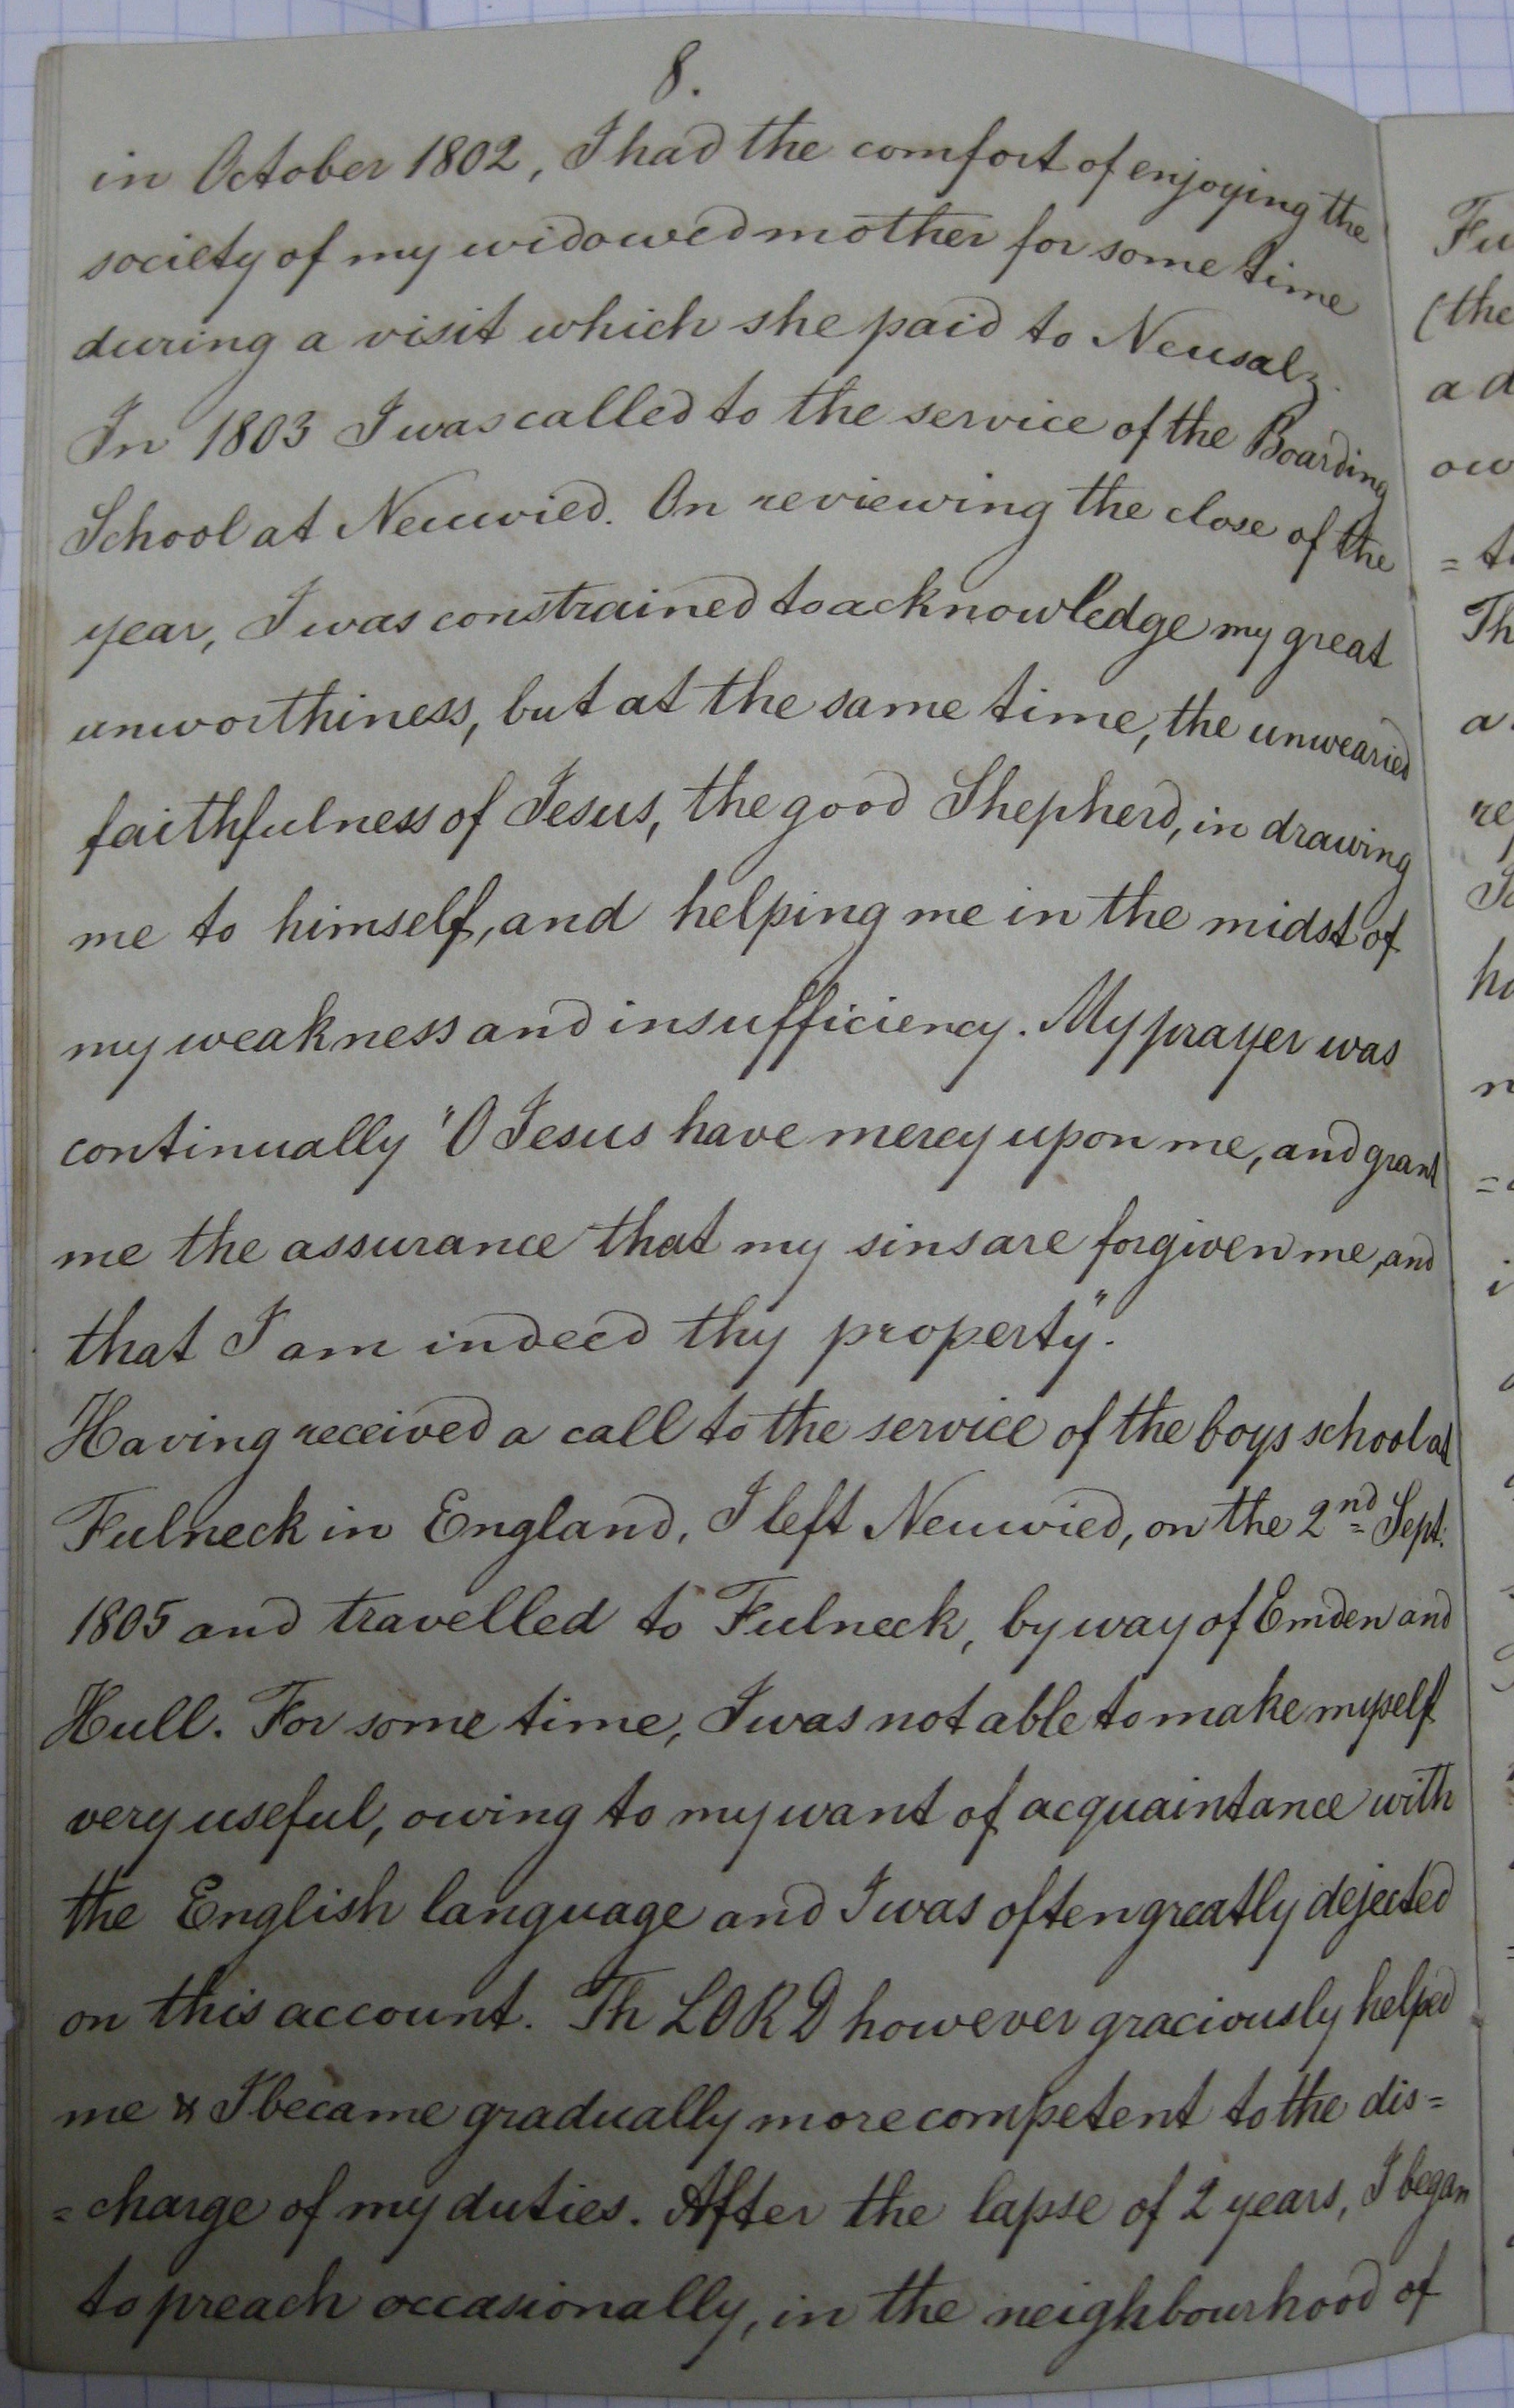 8.
in October 1802, I had the comfort of enjoying the
society of my widowed mother for some time
during a visit which she paid to Neusalz.
In 1803 I was called to the service of the Boarding
School at Neuwied. On reviewing the close of the
year, I was constrained to acknowledge my great
unworthiness, but at the same time, the unwearied
faithfulness of Jesus, the good Shepherd, in drawing
me to himself, and helping me in the midst of
my weakness and insufficiency. My prayer was
continually "O Jesus have mercy upon me, and grant
me the assurance that my sins are forgiven me, and
that I am indeed thy property".
Having received a call to the service of the boys school at
Fulneck in England, I left Neuwied, on the 2nd Sept.
1805 and travelled to Fulneck, by way of Emden and
Hull. For some time, I was not able to make myself
very useful, owing to my want of acquaintance with
the English language and I was often greatly dejected
on this account. Th LORD however graciously helped
me & I became gradually more competent to the dis=
=charge of my duties. After the lapse of 2 years, I began
to preach occasionally, in the neighbourhood of
Fu
(the
a d
ow
Th